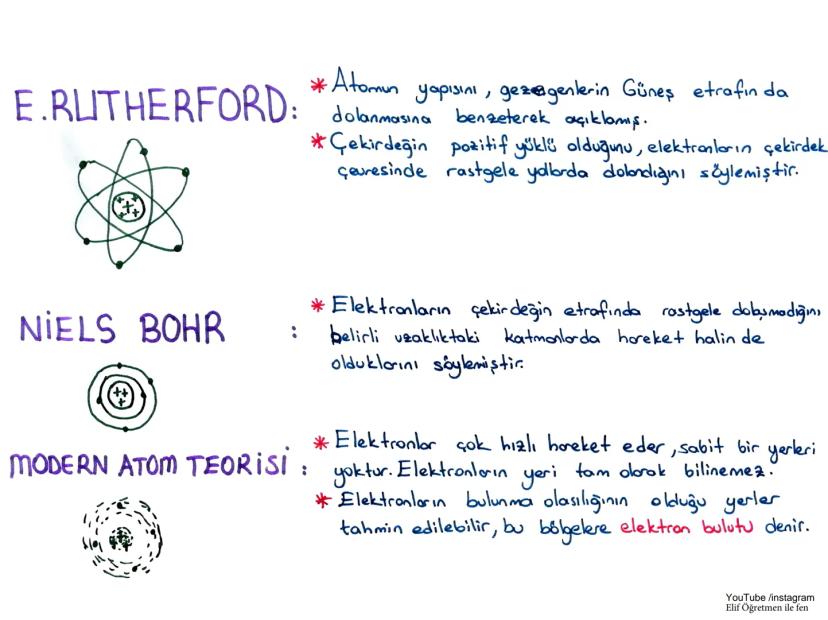 E. RUTHERFORD:
* Atomun yapısını, gezegenlerin Güneş etrafında
dolanmasına benzeterek açıklamış.
* Çekirdeğin pozitif yüklü olduğunu, elektronların çekirdek
çevresinde rastgele yollarda dolandığını söylemiştir.
NİELS BOHR :
* Elektronların çekirdeğin etrafında rastgele dolaşmadığını
belirli uzaklıktaki katmanlarda hareket halinde
olduklarını söylemiştir.
MODERN ATOM TEORİSİ :
* Elektronlar çok hızlı hareket eder, sabit bir yerleri
yoktur. Elektronların yeri tam olarak bilinemez.
* Elektronların bulunma olasılığının olduğu yerler
tahmin edilebilir, bu bölgelere elektron bulutu denir.
YouTube /instagram
Elif Öğretmen ile fen